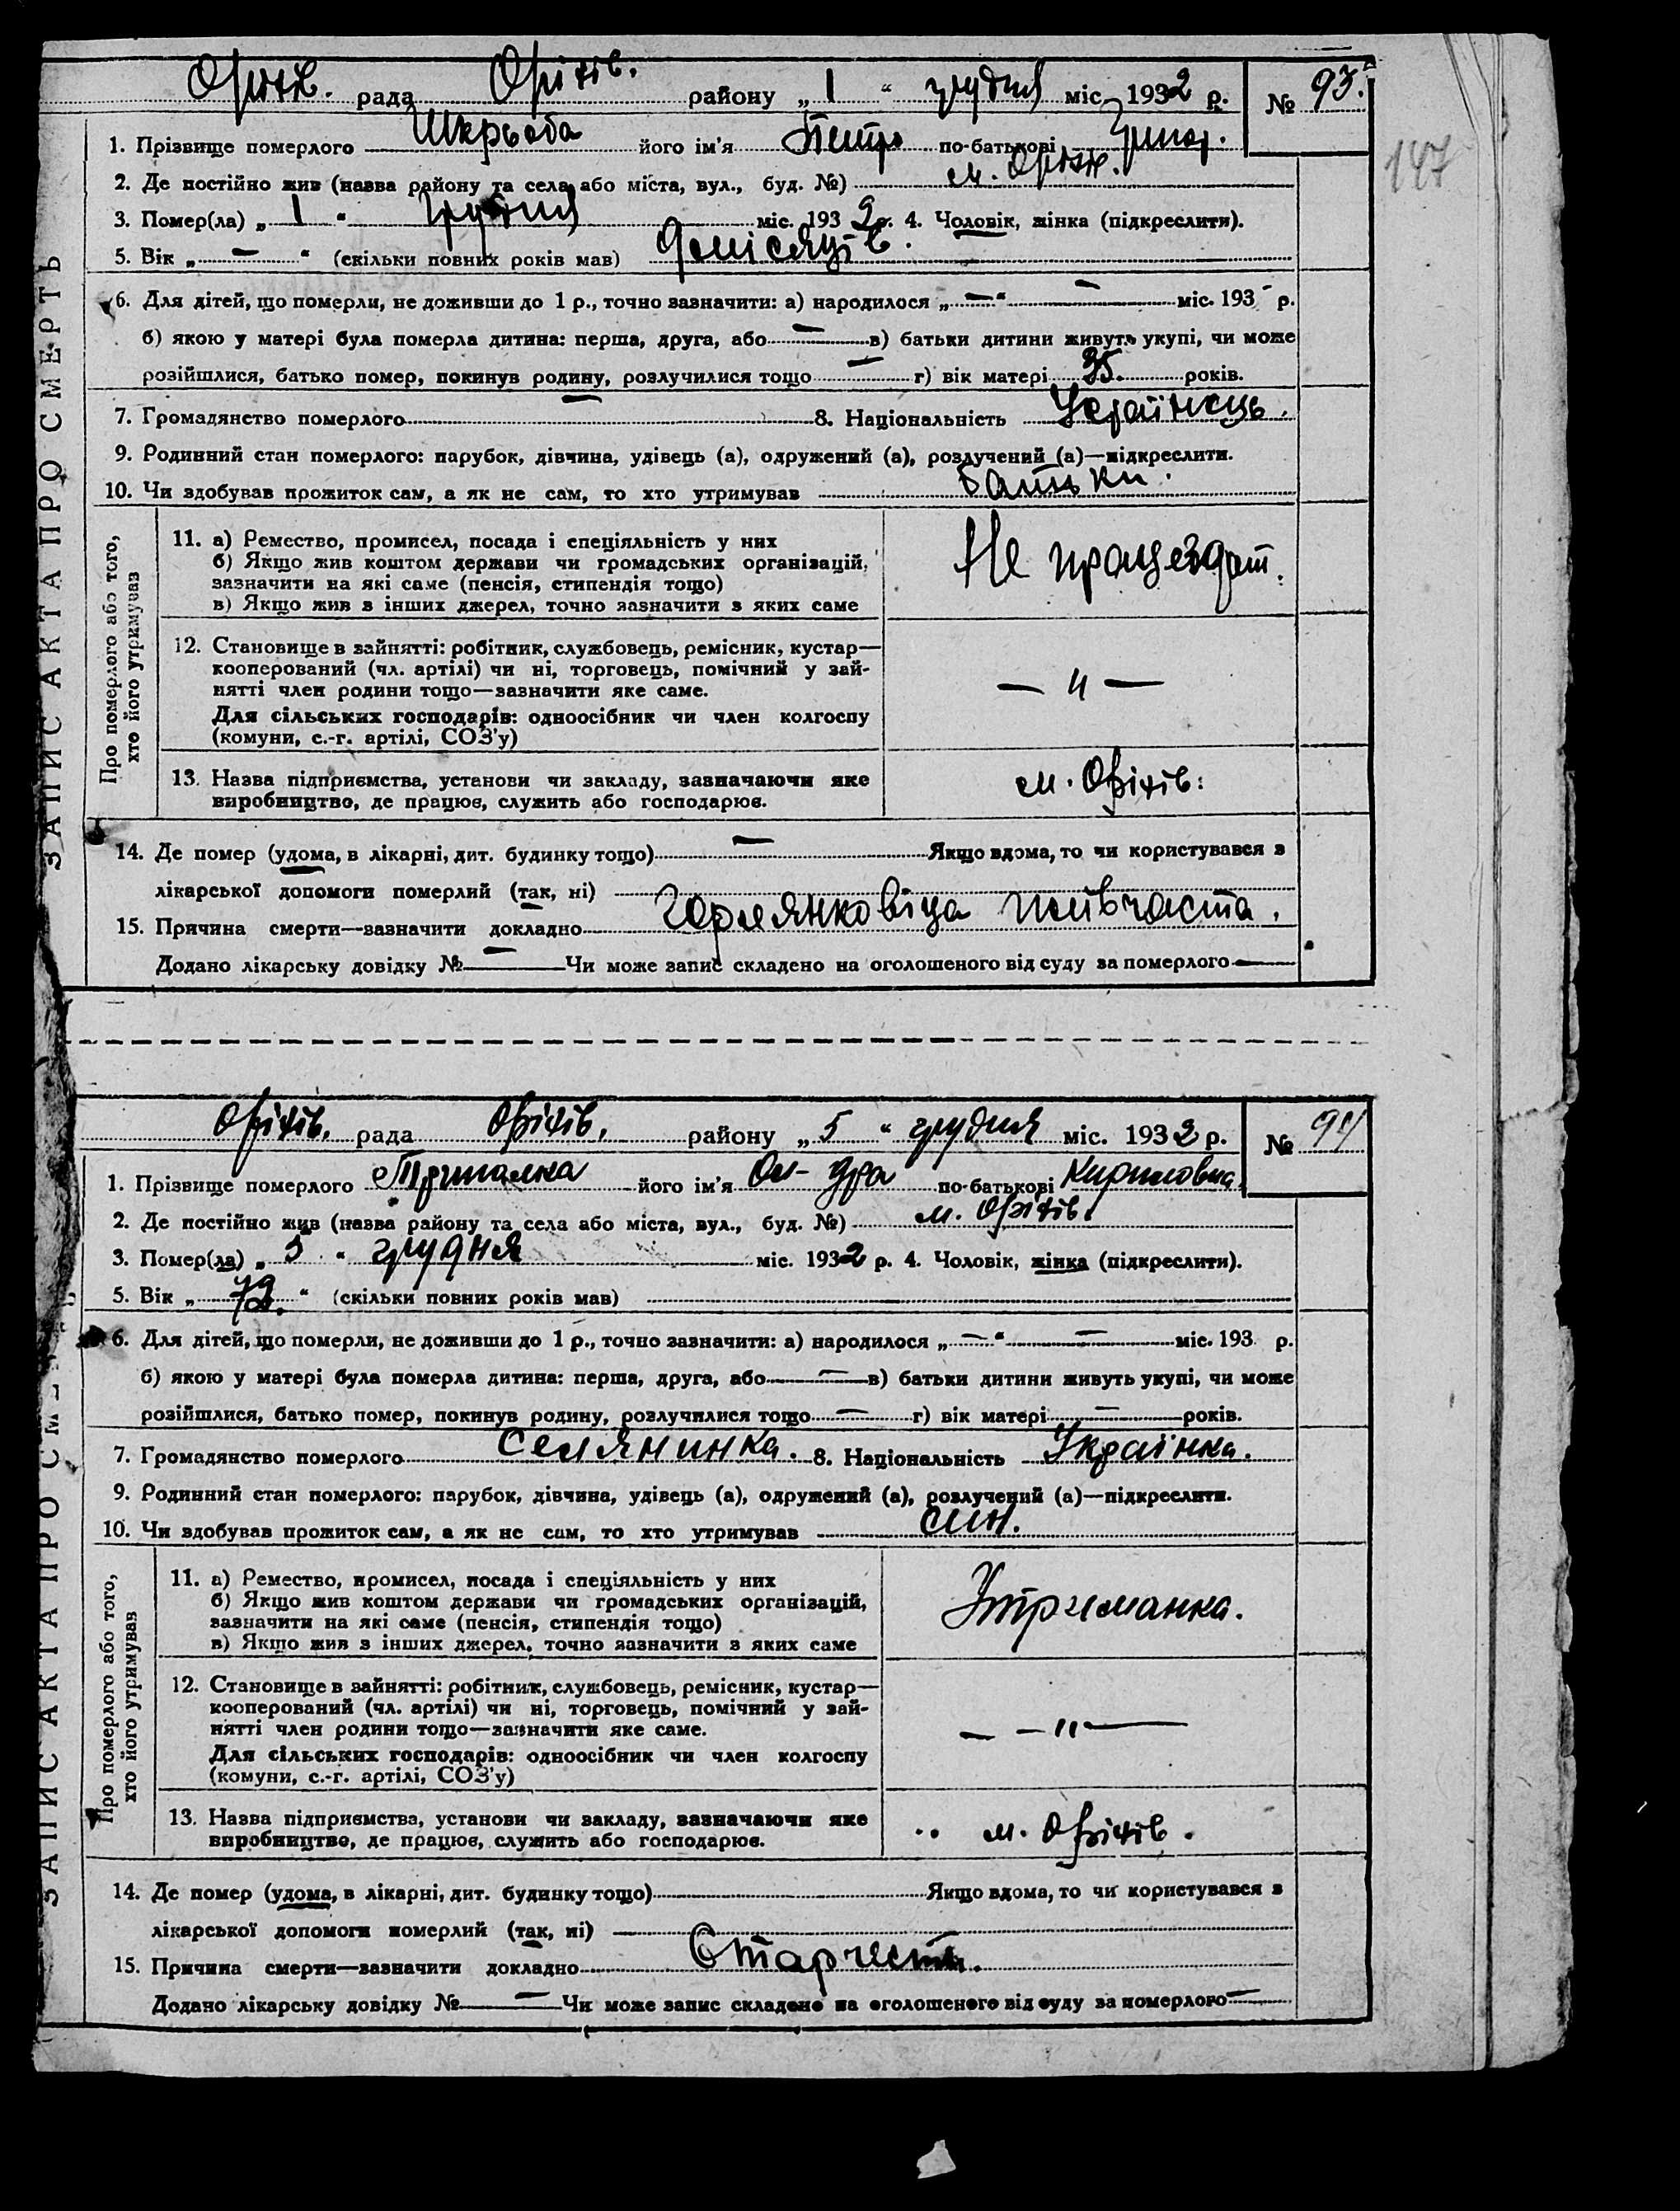 Оріхів. рада Оріхів. району „ 1 “ грудня міс. 1932 р. № 93.
147
1. Прізвище померлого Шкрьоба його ім'я Петро по-батькові Григор.
2. Де постійно жив (назва району та села або міста, вул., буд. №) м. Оріхів.
3. Помер(ла) „ 1 “ грудня міс. 1932 р. 4. Чоловік, жінка (підкреслити).
5. Вік „ — “ (скільки повних років мав) 9 місяців.
6. Для дітей, що померли, не доживши до 1 р., точно зазначити: а) народилося „ — “ — міс. 193 - р.
б) якою у матері була померла дитина: перша, друга, або — в) батьки дитини живуть укупі, чи може
розійшлися, батько помер, покинув родину, розлучилися тощо — г) вік матері 35. років.
7. Громадянство померлого — 8. Національність Українець.
9. Родинний стан померлого: парубок, дівчина, удівець (а), одружений (а), розлучений (а)—підкреслити.
10. Чи здобував прожиток сам, а як не сам, то хто утримував батьки.
ЗАПИС АКТА ПРО СМЕРТЬ
Про померлого або того,
хто його утримував
11. а) Ремество, промисел, посада і спеціяльність у них
б) Якщо жив коштом держави чи громадських організацій,
зазначити на які саме (пенсія, стипендія тощо)
в) Якщо жив з інших джерел, точно зазначити з яких саме
Не працездат.
12. Становище в зайнятті: робітник, службовець, ремісник, кустар—
кооперований (чл. артілі) чи ні, торговець, помічний у зай-
нятті член родини тощо—зазначити яке саме.
Для сільських господарів: одноосібник чи член колгоспу
(комуни, с.-г. артілі, СОЗ'у)
— „ —
13. Назва підприємства, установи чи закладу, зазначаючи яке
виробництво, де працює, служить або господарює.
м. Оріхів.
14. Де помер (удома, в лікарні, дит. будинку тощо) — Якщо вдома, то чи користувався з
лікарської допомоги померлий (так, ні)
15. Причина смерти—зазначити докладно
Додано лікарську довідку № — Чи може запис складено на оголошеного від суду за померлого —
Оріхів. рада Оріхів. району „ 5 “ грудня міс. 1932 р. № 94
1. Прізвище померлого його ім'я Ол-дра по-батькові Кириловна.
2. Де постійно жив (назва району та села або міста, вул., буд. №) м. Оріхів.
3. Помер(ла) „ 5 “ грудня міс. 1932 р. 4. Чоловік, жінка (підкреслити).
5. Вік „ “ (скільки повних років мав)
6. Для дітей, що померли, не доживши до 1 р., точно зазначити: а) народилося „ — “ — міс. 193 р.
б) якою у матері була померла дитина: перша, друга, або — в) батьки дитини живуть укупі, чи може
розійшлися, батько помер, покинув родину, розлучилися тощо — г) вік матері — років.
7. Громадянство померлого селянинка. 8. Національність Українка.
9. Родинний стан померлого: парубок, дівчина, удівець (а), одружений (а), розлучений (а)—підкреслити.
10. Чи здобував прожиток сам, а як не сам, то хто утримував син.
ЗАПИС АКТА ПРО СМЕ
Про померлого або того,
хто його утримував
11. а) Ремество, промисел, посада і спеціяльність у них
б) Якщо жив коштом держави чи громадських організацій,
зазначити на які саме (пенсія, стипендія тощо)
в) Якщо жив з інших джерел, точно зазначити з яких саме
Утриманка.
12. Становище в зайнятті: робітник, службовець, ремісник, кустар—
кооперований (чл. артілі) чи ні, торговець, помічний у зай-
нятті член родини тощо—зазначити яке саме.
Для сільських господарів: одноосібник чи член колгоспу
(комуни, с.-г. артілі, СОЗ'у)
— — „ —
13. Назва підприємства, установи чи закладу, зазначаючи яке
виробництво, де працює, служить або господарює.
м. Оріхів.
14. Де помер (удома, в лікарні, дит. будинку тощо) Якщо вдома, то чи користувався з
лікарської допомоги померлий (так, ні)
15. Причина смерти—зазначити докладно Старчість.
Додано лікарську довідку № — Чи може запис складено на оголошеного від суду за померлого —